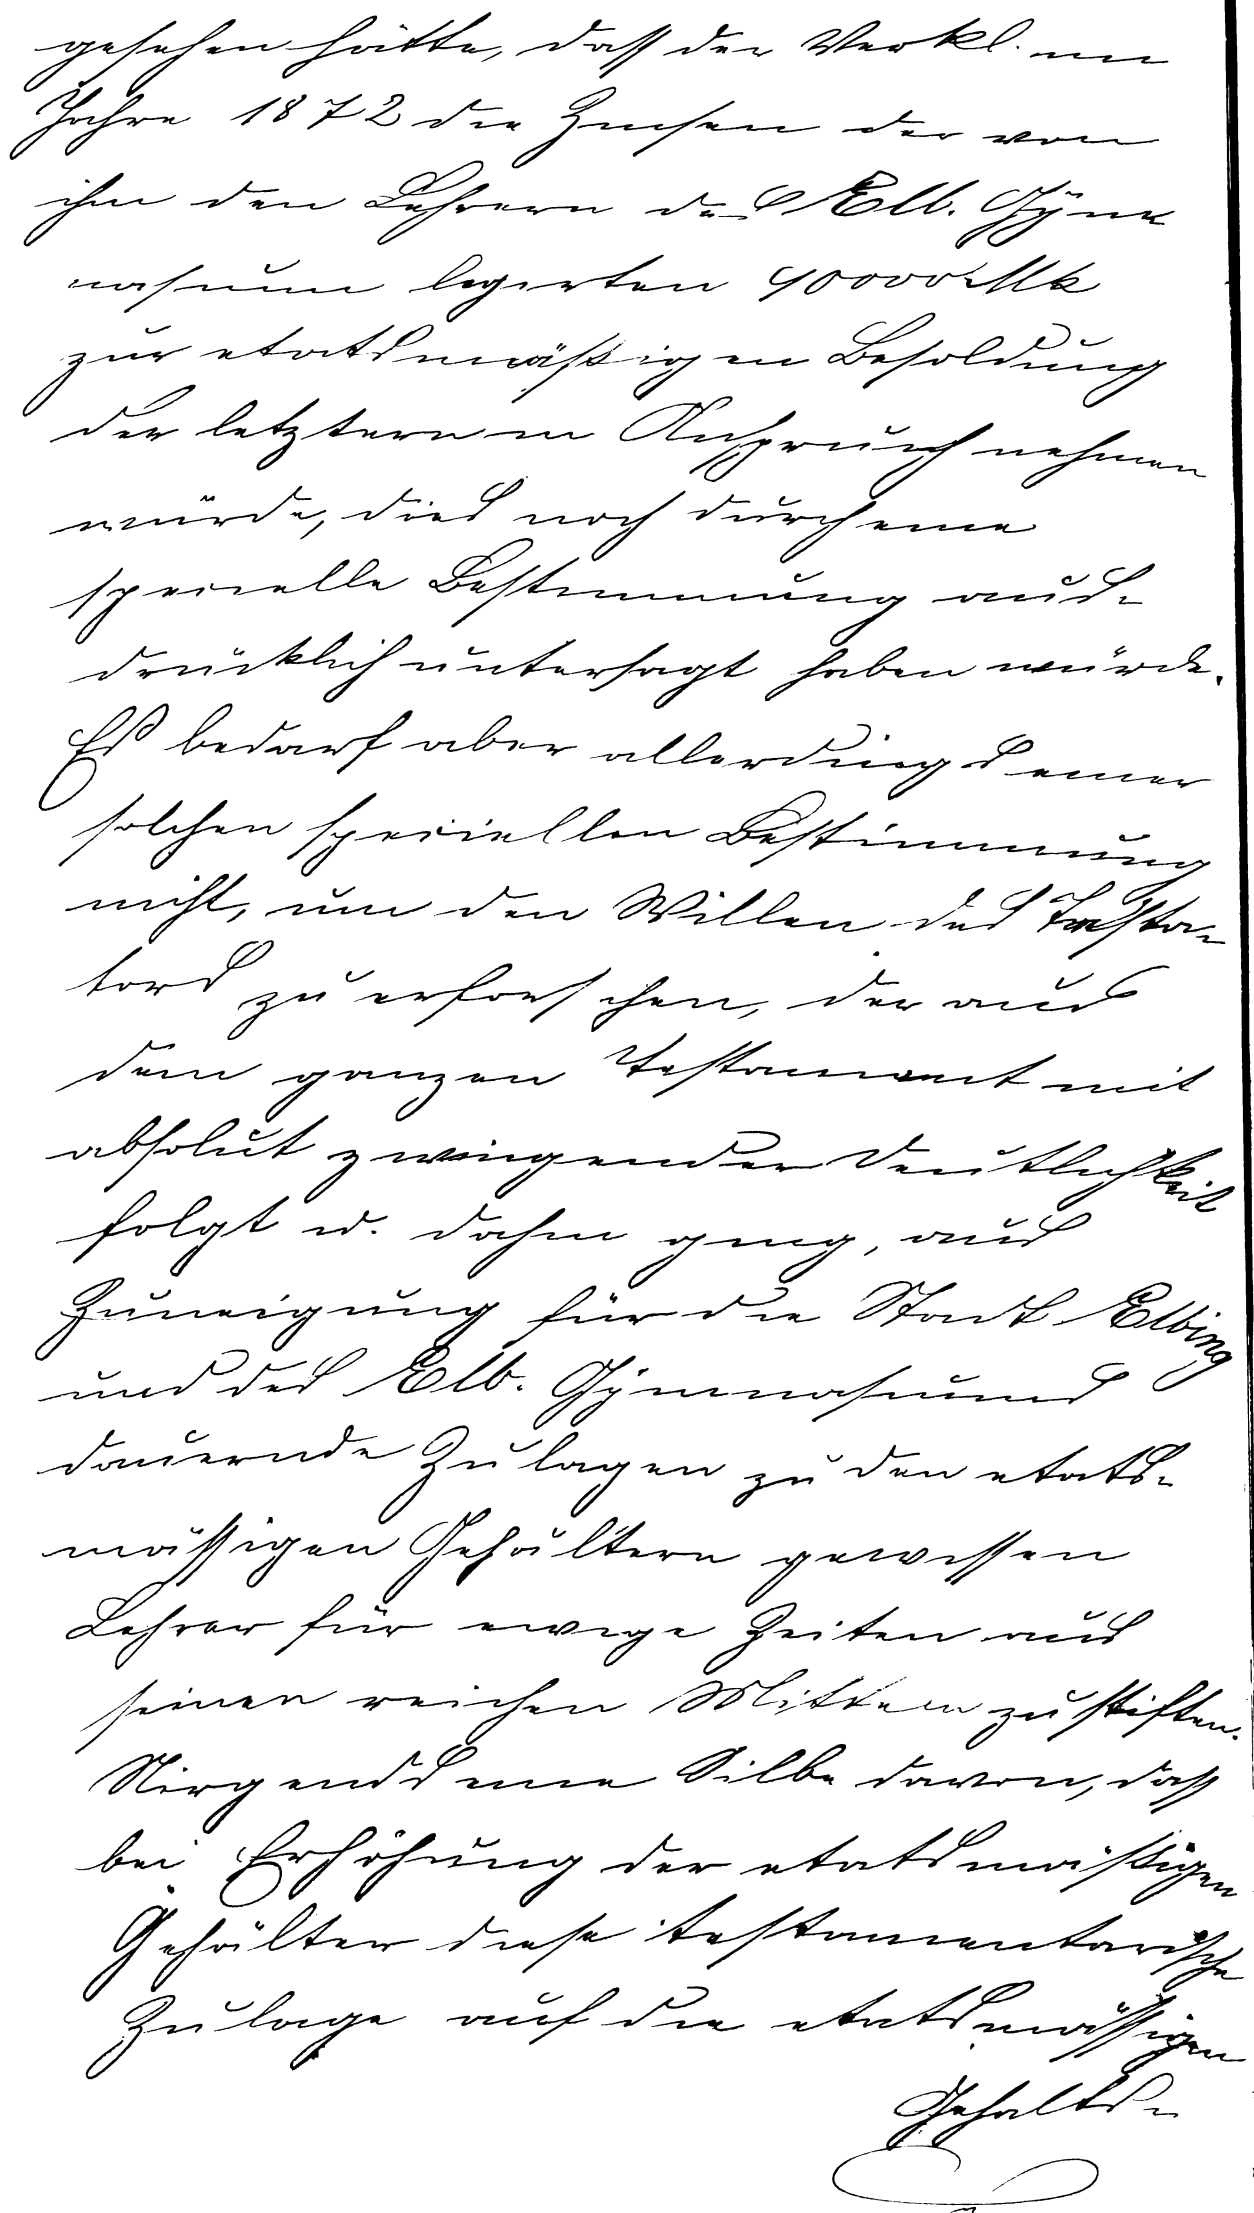 gesehen hätte, dass der Verkl. im
Jahre 1872 die Zinsen der von
ihm den Lehrern des Elb. Gym
nasium legirten 90000 Mk
zur etatsmäßigen Besoldung
der letztern in Anspruch nehmen
würde, dies noch durch eine
specielle Bestimmung aus-
drücklich untersagt haben würde.
Es bedarf aber allerdings einer
solchen speciellen Bestimmung
nicht, um den Willen des Testa-
tors zu erforschen, der aus
dem ganzen Testament mit
absolut zwingender Deutlichkeit
folgt u. dahin ging, aus
Zuneigung für die Stadt Elbing
und des Elb. Gymnasiums
dauernde Zulagen zu den etats-
mässigen Gehältern gewissen
Lehrer für ewige Zeiten aus
seinen reichen Mitteln zu stiften.
Nirgends eine Silbe davon, dass
bei Erhöhung der etatsmäßigen
Gehälter diese testamentarische
Zulage auf die etatsmässigen
Gehalts-